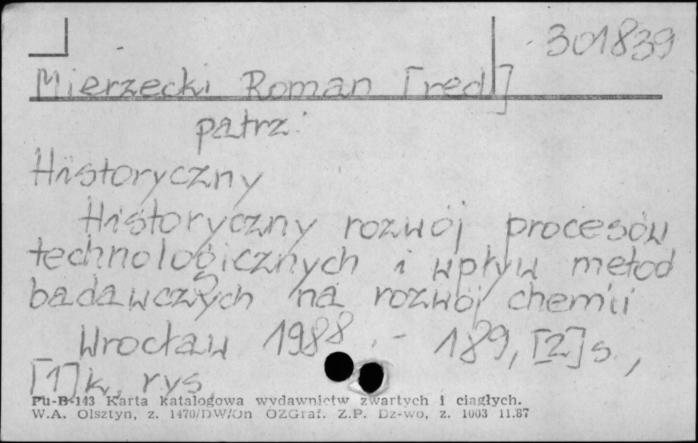 301839
Mierzecki Roman [red]
patrz:
Historyczny
Historyczny rozwój procesów
technologicznych i wpływ metod
badawczych na rozwój chemii
Wrocław 1988. - 189, [2] s.,
[1] k. rys
Pu-B-143 Karta katalogowa wydawnictw zwartych i ciągłych.
W.A. Olsztyn, z. 1470/DW/On OZGraf. Z.P. Dz-wo, z. 1003 11.87